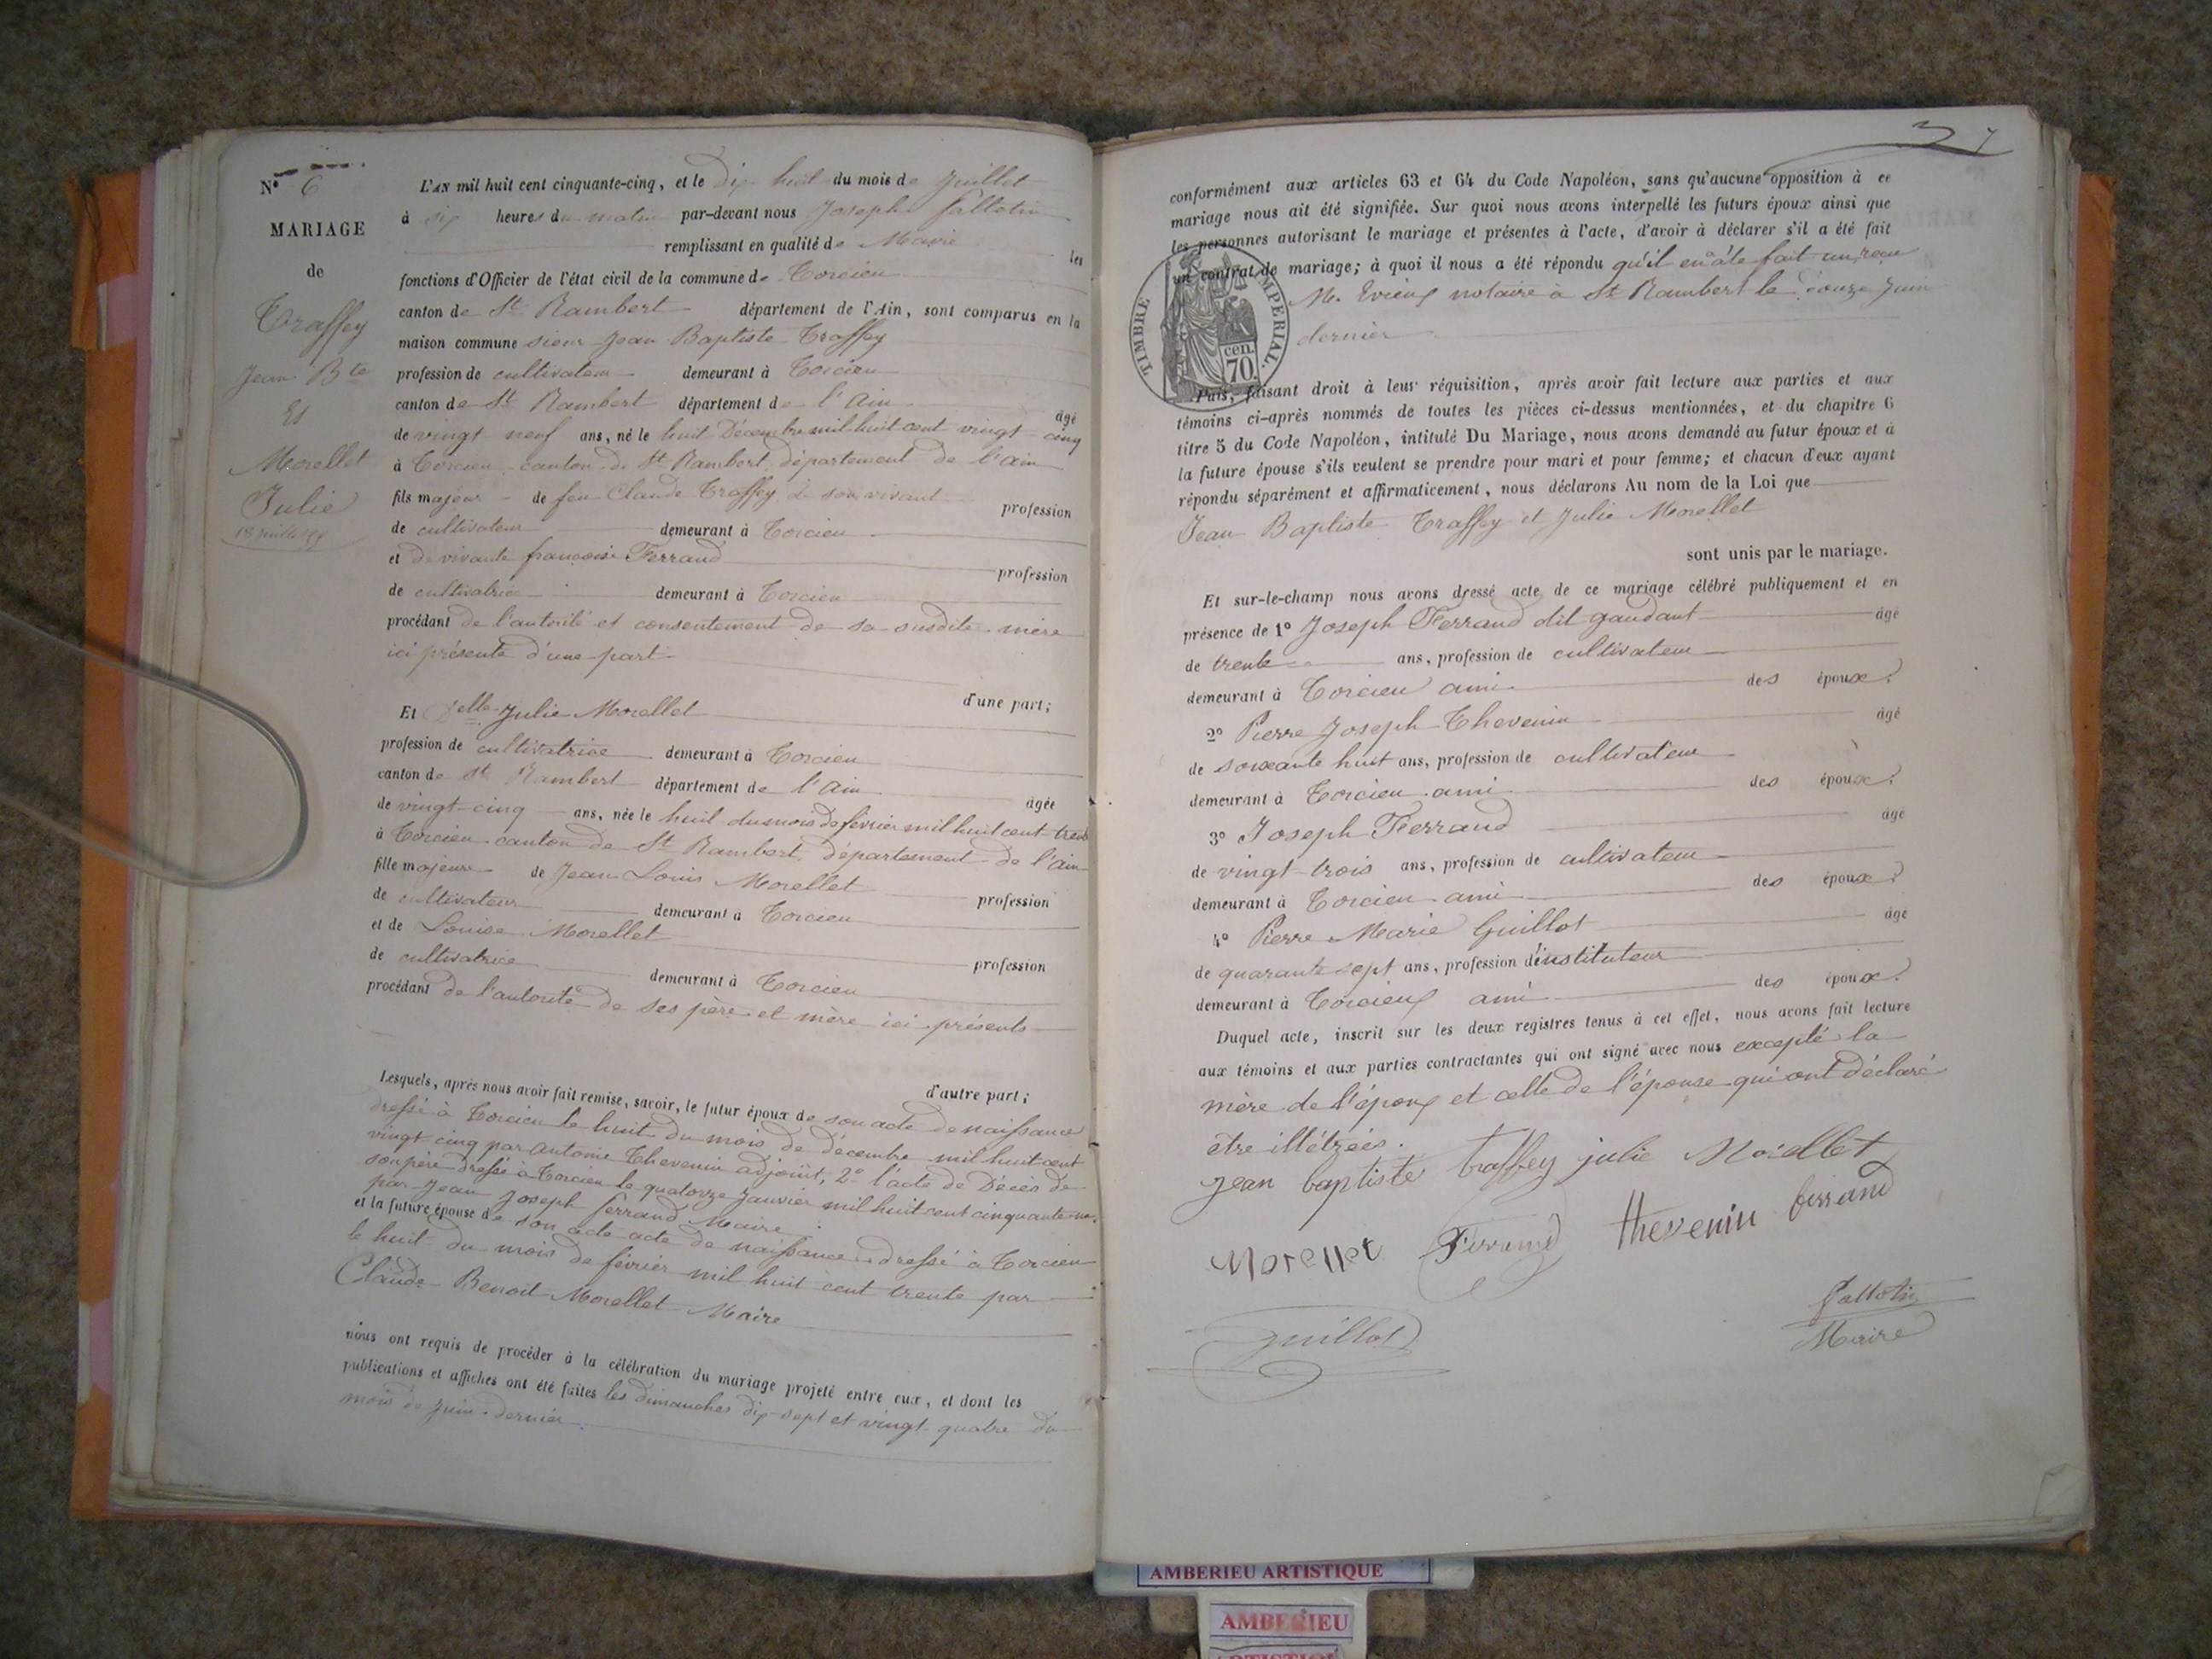 N° 6
MARIAGE
de
Traffey
Jean Bte
Et
Morellet
Julie
L'AN mil huit cent cinquante-cinq, et le dix huit du mois de Juillet
à six heures du matin par-devant nous Joseph Gallotin
remplissant en qualité de Maire les
fonctions d'Officier de l'état civil de la commune de Torcieu
canton de St Rambert département de l'Ain, sont comparus en la
maison commune sieur Jean Baptiste Traffey
profession de cultivateur demeurant à Torcieu
canton de St Rambert département de l'Ain âgé
de vingt neuf ans, né le huit Décembre mil huit cent vingt cinq
à Torcieu canton de St Rambert département de l'ain
fils majeur de feu Claude Traffey de son vivant profession
de cultivateur demeurant à Torcieu
et de vivante françoise Ferrand profession
de cultivatrice demeurant à Torcieu
procédant de l'autorité et consentement de sa susdite mère
ici présente d'une part
d'une part;
Et Delle Julie Morellet
profession de cultivatrice demeurant à Torcieu
canton de St Rambert département de l'Ain âgée
de vingt-cinq ans, née le huit du mois de février mil huit cent trente
à Torcieu canton de St Rambert département de l'ain
fille majeure de Jean Louis Morellet profession
de cultivateur demeurant à Torcieu
et de Louise Morellet profession
de cultivatrice demeurant à Torcieu
procédant de l'autorité de ses père et mère ici présents
d'autre part;
Lesquels, après nous avoir fait remise, savoir, le futur époux de son acte de naissance
dressé à Torcieu le huit du mois de décembre mil huit cent
vingt-cinq par antoine Thevenin adjoint, 2° l'acte de Décès de
son père dressé à Torcieu le quatorze Janvier mil huit cent cinquante
par Jean Joseph ferrand Maire
et la future épouse de son acte acte de naissance dressé à Torcieu
le huit du mois de février mil huit cent trente par
Claude Benoit Morellet Maire
nous ont requis de procéder à la célébration du mariage projeté entre eux, et dont les
publications et affiches ont été faites les dimanches dix-sept et vingt quatre du
mois de juin dernier
37
conformément aux articles 63 et 64 du Code Napoléon, sans qu'aucune opposition à ce
mariage nous ait été signifiée. Sur quoi nous avons interpellé les futurs époux ainsi que
les personnes autorisant le mariage et présentes à l'acte, d'avoir à déclarer s'il a été fait
un contrat de mariage; à quoi il nous a été répondu qu'il en a été fait un reçu
M. Evieux notaire à St Rambert le douze Juin
dernier
TIMBRE IMPERIAL.
cen. 70.
Puis, faisant droit à leur réquisition, après avoir fait lecture aux parties et aux
témoins ci-après nommés de toutes les pièces ci-dessus mentionnées, et du chapitre 6
titre 5 du Code Napoléon, intitulé Du Mariage, nous avons demandé au futur époux et à
la future épouse s'ils veulent se prendre pour mari et pour femme; et chacun d'eux ayant
répondu séparément et affirmativement, nous déclarons Au nom de la Loi que
Jean Baptiste Traffey et Julie Morellet
sont unis par le mariage.
Et sur-le-champ nous avons dressé acte de ce mariage célébré publiquement et en
présence de 1° Joseph Ferrand dit gaudant âgé
de trente ans, profession de cultivateur
demeurant à Torcieu ami des époux
2° Pierre Joseph Thevenin âgé
de soixante huit ans, profession de cultivateur
demeurant à Torcieu ami des époux
3° Joseph Ferrand âgé
de vingt trois ans, profession de cultivateur
demeurant à Torcieu ami des époux
4° Pierre Marie Guillot âgé
de quarante sept ans, profession d'instituteur
demeurant à Torcieux ami des époux
Duquel acte, inscrit sur les deux registres tenus à cet effet, nous avons fait lecture
aux témoins et aux parties contractantes qui ont signé avec nous excepté la
mère de l'époux et celle de l'épouse qui ont déclaré
être illétrées.
jean baptiste traffey julie Morellet
Morellet Ferrand thevenin ferrand
Guillot
Gallotin
Maire
AMBERIEU ARTISTIQUE
AMBERIEU
ARTISTIQUE